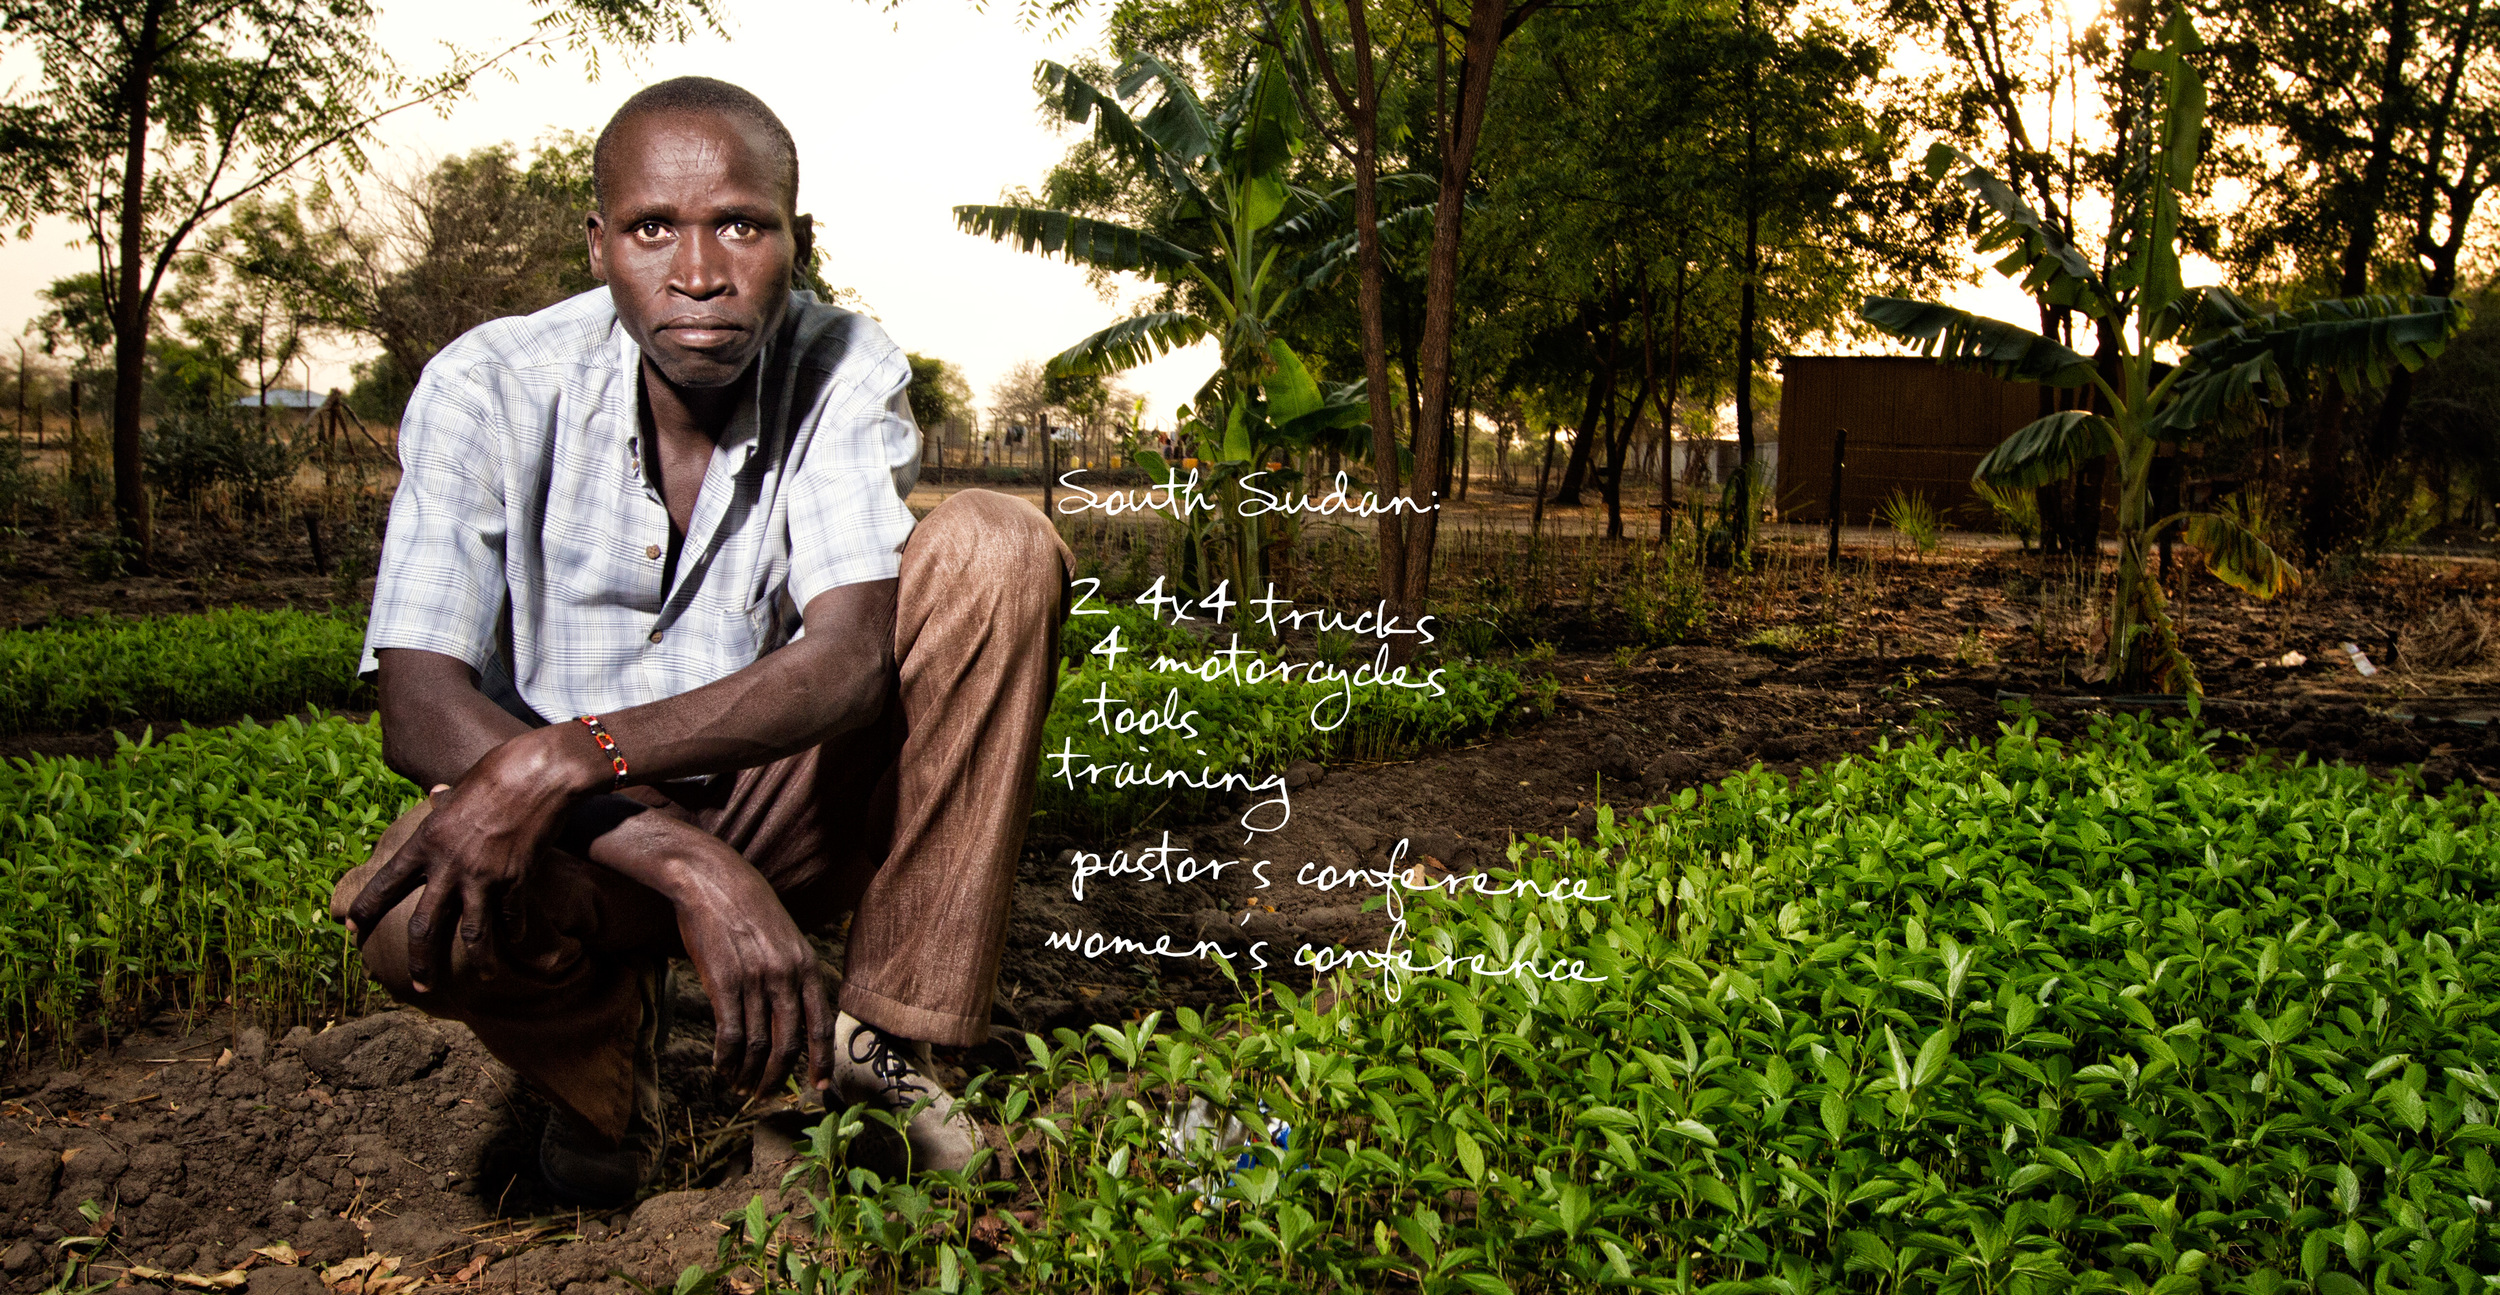 South Sudan:
2 4x4 trucks
4 motorcycles
tools
training
pastor's conference
women's conference